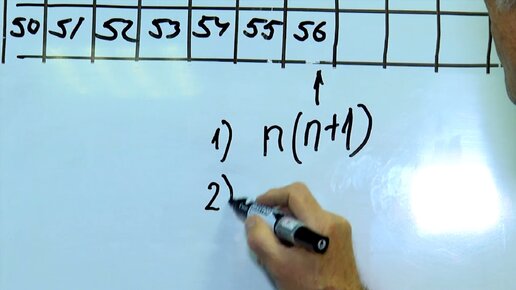 50 51 52 53 54 55 56
1) n(n+1)
2)